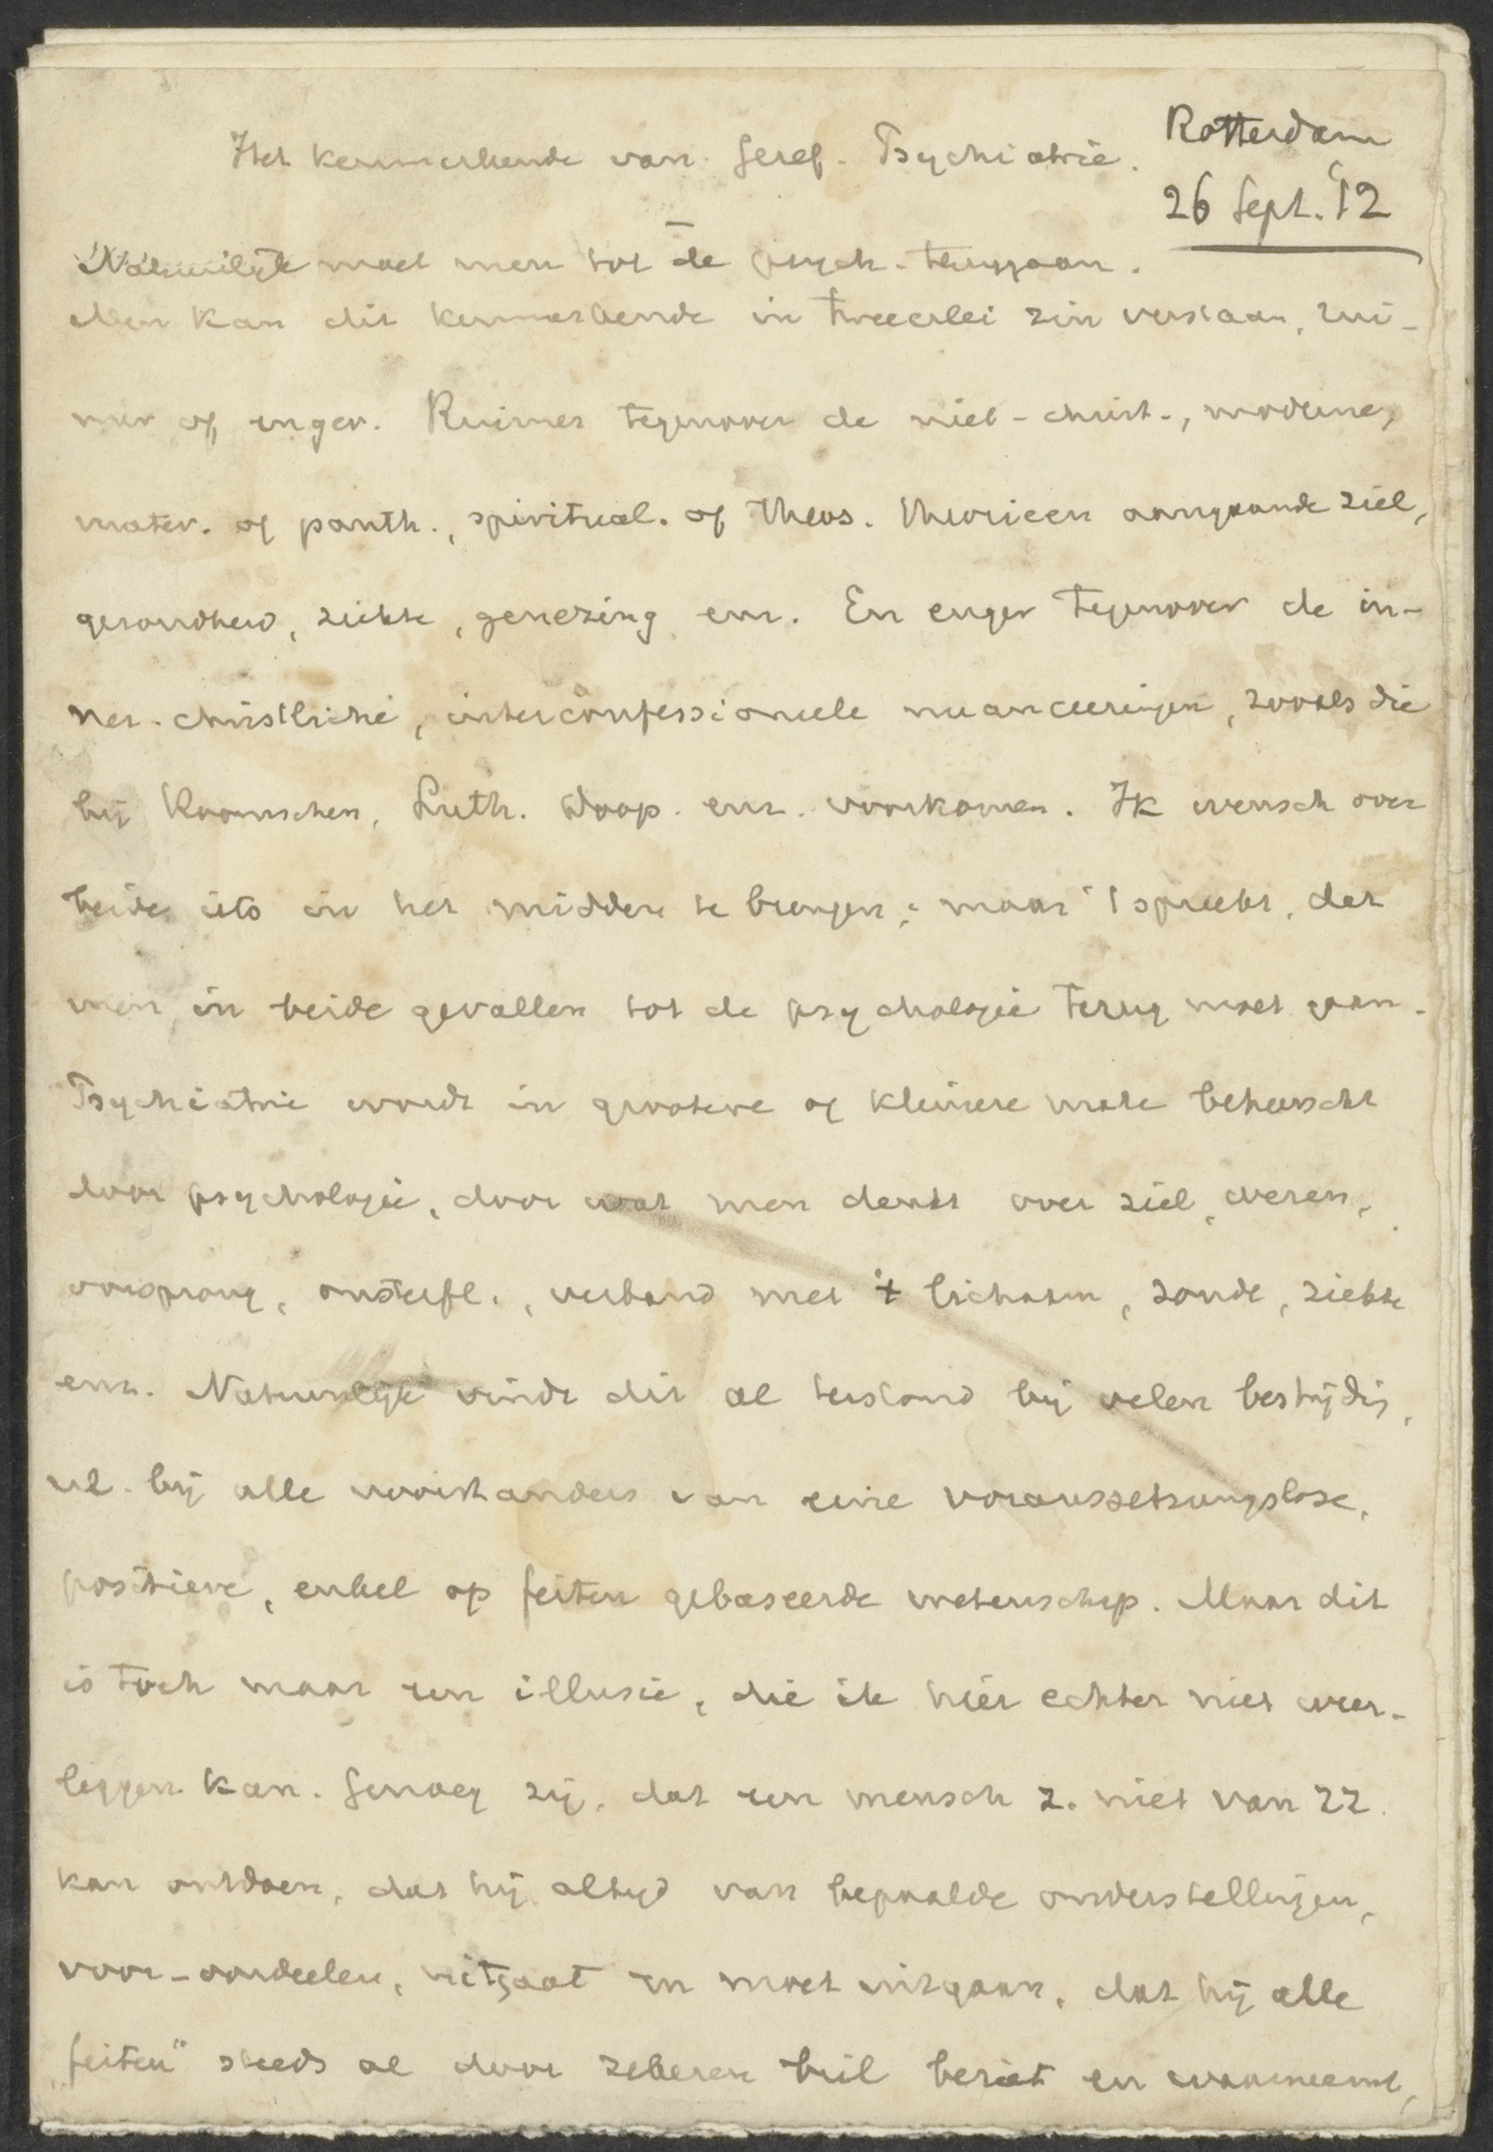 Het kenmerkende van Geref. Psychiatrie.
Rotterdam
26 Sept. '12
Natuurlijk moet men tot de psych. teruggaan.
Men kan dit kenmerkende in tweeerlei zin verstaan, rui-
mer of enger. Ruimer tegenover de niet-christ., moderne,
mater. of panth., spiritual. of theos. theorieen aangaande ziel,
gezondheid, ziekte, genezing enz. En enger tegenover de in-
ner-christliche, interconfessioneele nuanceeringen, zooals die
bij Roomschen, Luth. Doop. enz. voorkomen. Ik wensch over
beide iets in het midden te brengen; maar 't spreekt, dat
men in beide gevallen tot de psychologie terug moet gaan.
Psychiatrie wordt in grootere of kleinere mate beheerscht
door psychologie, door wat men denkt over ziel, wezen,
oorsprong, onsterfl., verband met 't lichaam, zonde, ziekte
enz. Natuurlijk vindt dit al terstond bij velen bestrijdig,
nl. bij alle voorstanders van eene voraussetzungslose,
positieve, enkel op feiten gebaseerde wetenschap. Maar dit
is toch maar een illusie, die ik hier echter niet weer-
leggen kan. Genoeg zij, dat een mensch z. niet van zz.
kan ontdoen, dat hij altijd van bepaalde onderstellingen,
voor-oordeelen, uitgaat en moet uitgaan, dat hij alle
„feiten" steeds al door zekeren bril beziet en waarneemt,